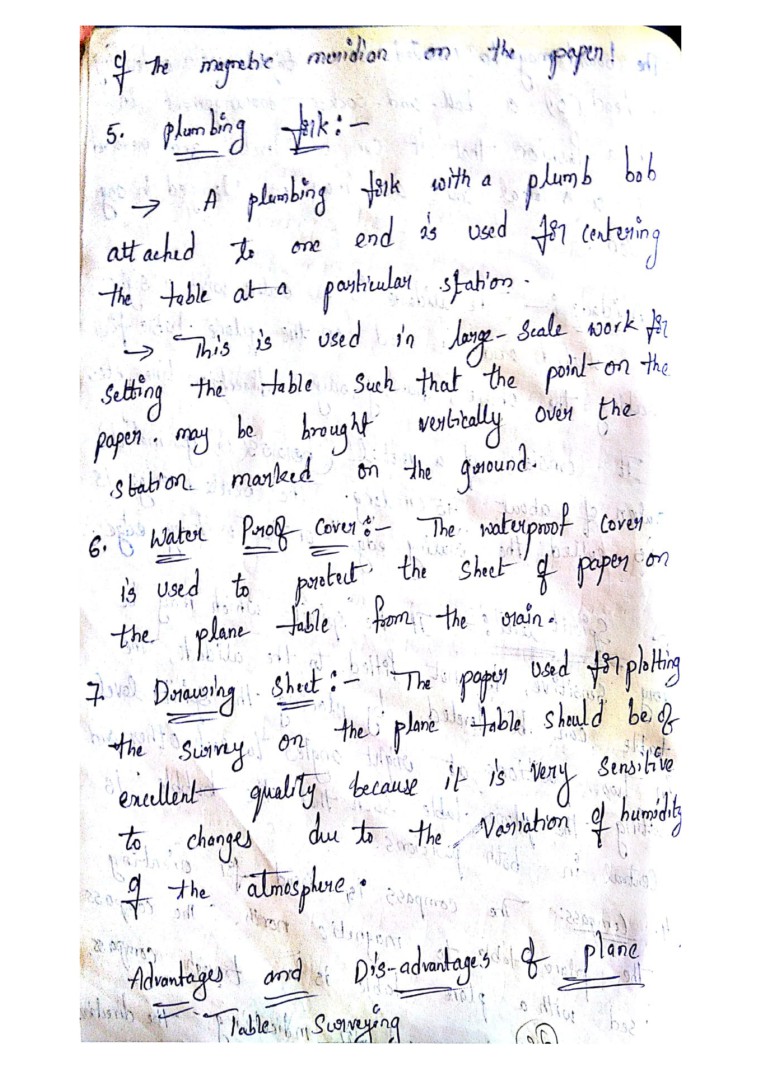 of the magnetic meridian on the paper!
5. plumbing fork:-
→ A plumbing fork with a plumb bob
attached to one end is used for centering
the table at a particular station.
→ This is used in large-scale work for
setting the table such that the point on the
paper may be brought vertically over the
station marked on the ground.
6. Water Proof Cover:- The waterproof cover
is used to protect the sheet of paper on
the plane table from the rain.
7. Drawing Sheet:- The paper used for plotting
the survey on the plane table should be of
excellent quality because it is very sensitive
to changes due to the variation of humidity
of the atmosphere.
Advantages and Dis-advantages of plane
Table Surveying